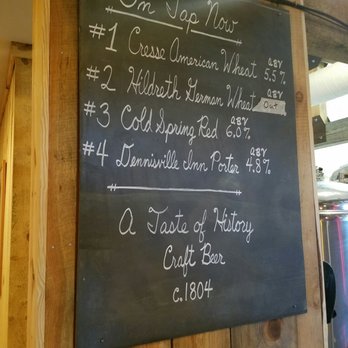 On Tap Now
#1 Cresse American Wheat ABV 5.5%
#2 Hildreth German Wheat ABV Out
#3 Cold Spring Red ABV 6.0%
#4 Dennisville Inn Porter ABV 4.8%
A Taste of History
Craft Beer
c.1804